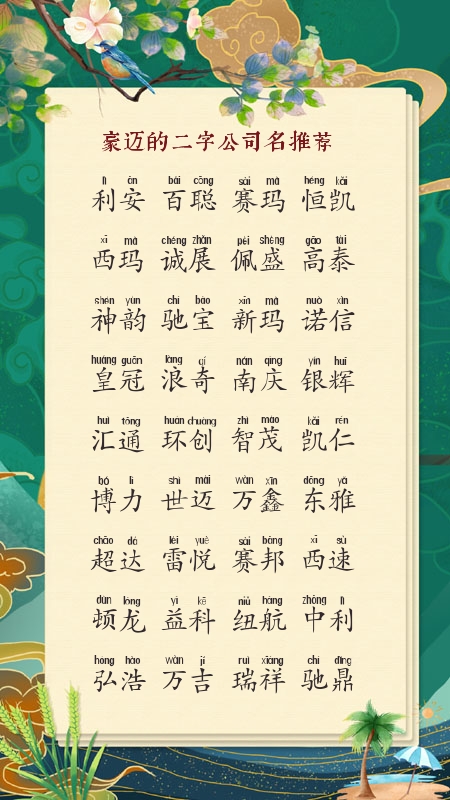 豪迈的二字公司名推荐
lì ān bǎi cōng sài mǎ héng kǎi
利安 百聪 赛玛 恒凯
xī mǎ chéng zhǎn pèi shèng gāo tài
西玛 诚展 佩盛 高泰
shén yùn chí bǎo xīn mǎ nuò xìn
神韵 驰宝 新玛 诺信
huáng guān làng qí nán qìng yín huī
皇冠 浪奇 南庆 银辉
huì tōng huán chuàng zhì mào kǎi rén
汇通 环创 智茂 凯仁
bó lì shì mài wàn xīn dōng yǎ
博力 世迈 万鑫 东雅
chāo dá léi yuè sài bāng xī sù
超达 雷悦 赛邦 西速
dùn lóng yì kē niǔ háng zhōng lì
顿龙 益科 纽航 中利
hóng hào wàn jí ruì xiáng chí dǐng
弘浩 万吉 瑞祥 驰鼎